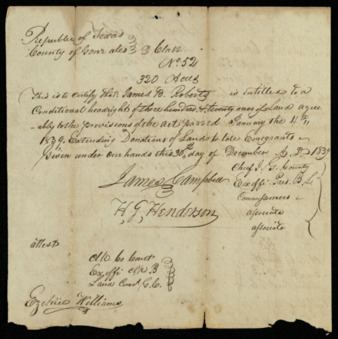 Republic of Texas
County of Gonzales 3 Class
No 52
320 Acres
This is to certify that James B. Roberts is entitled to a
Conditional headright of three hundred & twenty acres of Land agree
ably to the provisions of the act passed January the 4th
1839, Extending Donations of Lands to late Emigrants
Given under our hands this 30th day of December A.D. 1839
James Campbell Chief J. G. County
Ex offi Pres. B. L.
Commissioners
H. G. Henderson associate
associate
attest
Clk Co Court
Ex offi Clk B
Land Com G.C.
Ezekiel Williams